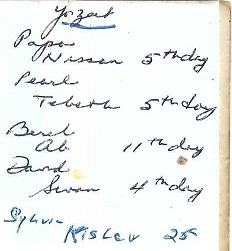 Yorzeit
Papa
Nissan 5th day
Pearl
Tebeth 5th day
Berel
Ab 11th day
David
Sivan 4th day
Sylvia
Kislev 25